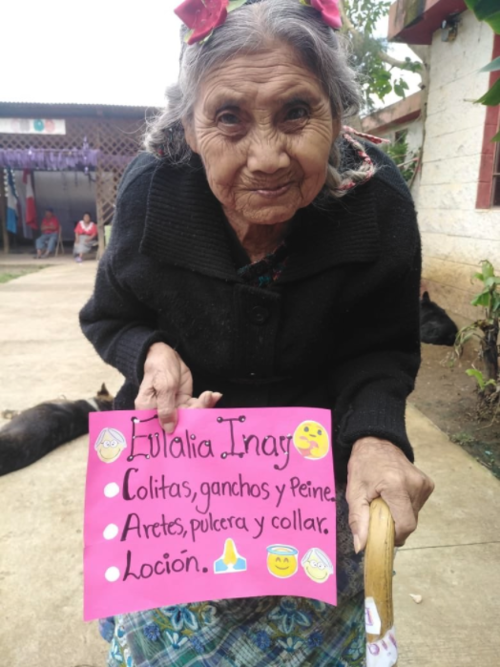 Eulalia Inay
Colitas, ganchos y Peine.
Aretes, pulcera y collar.
Loción.